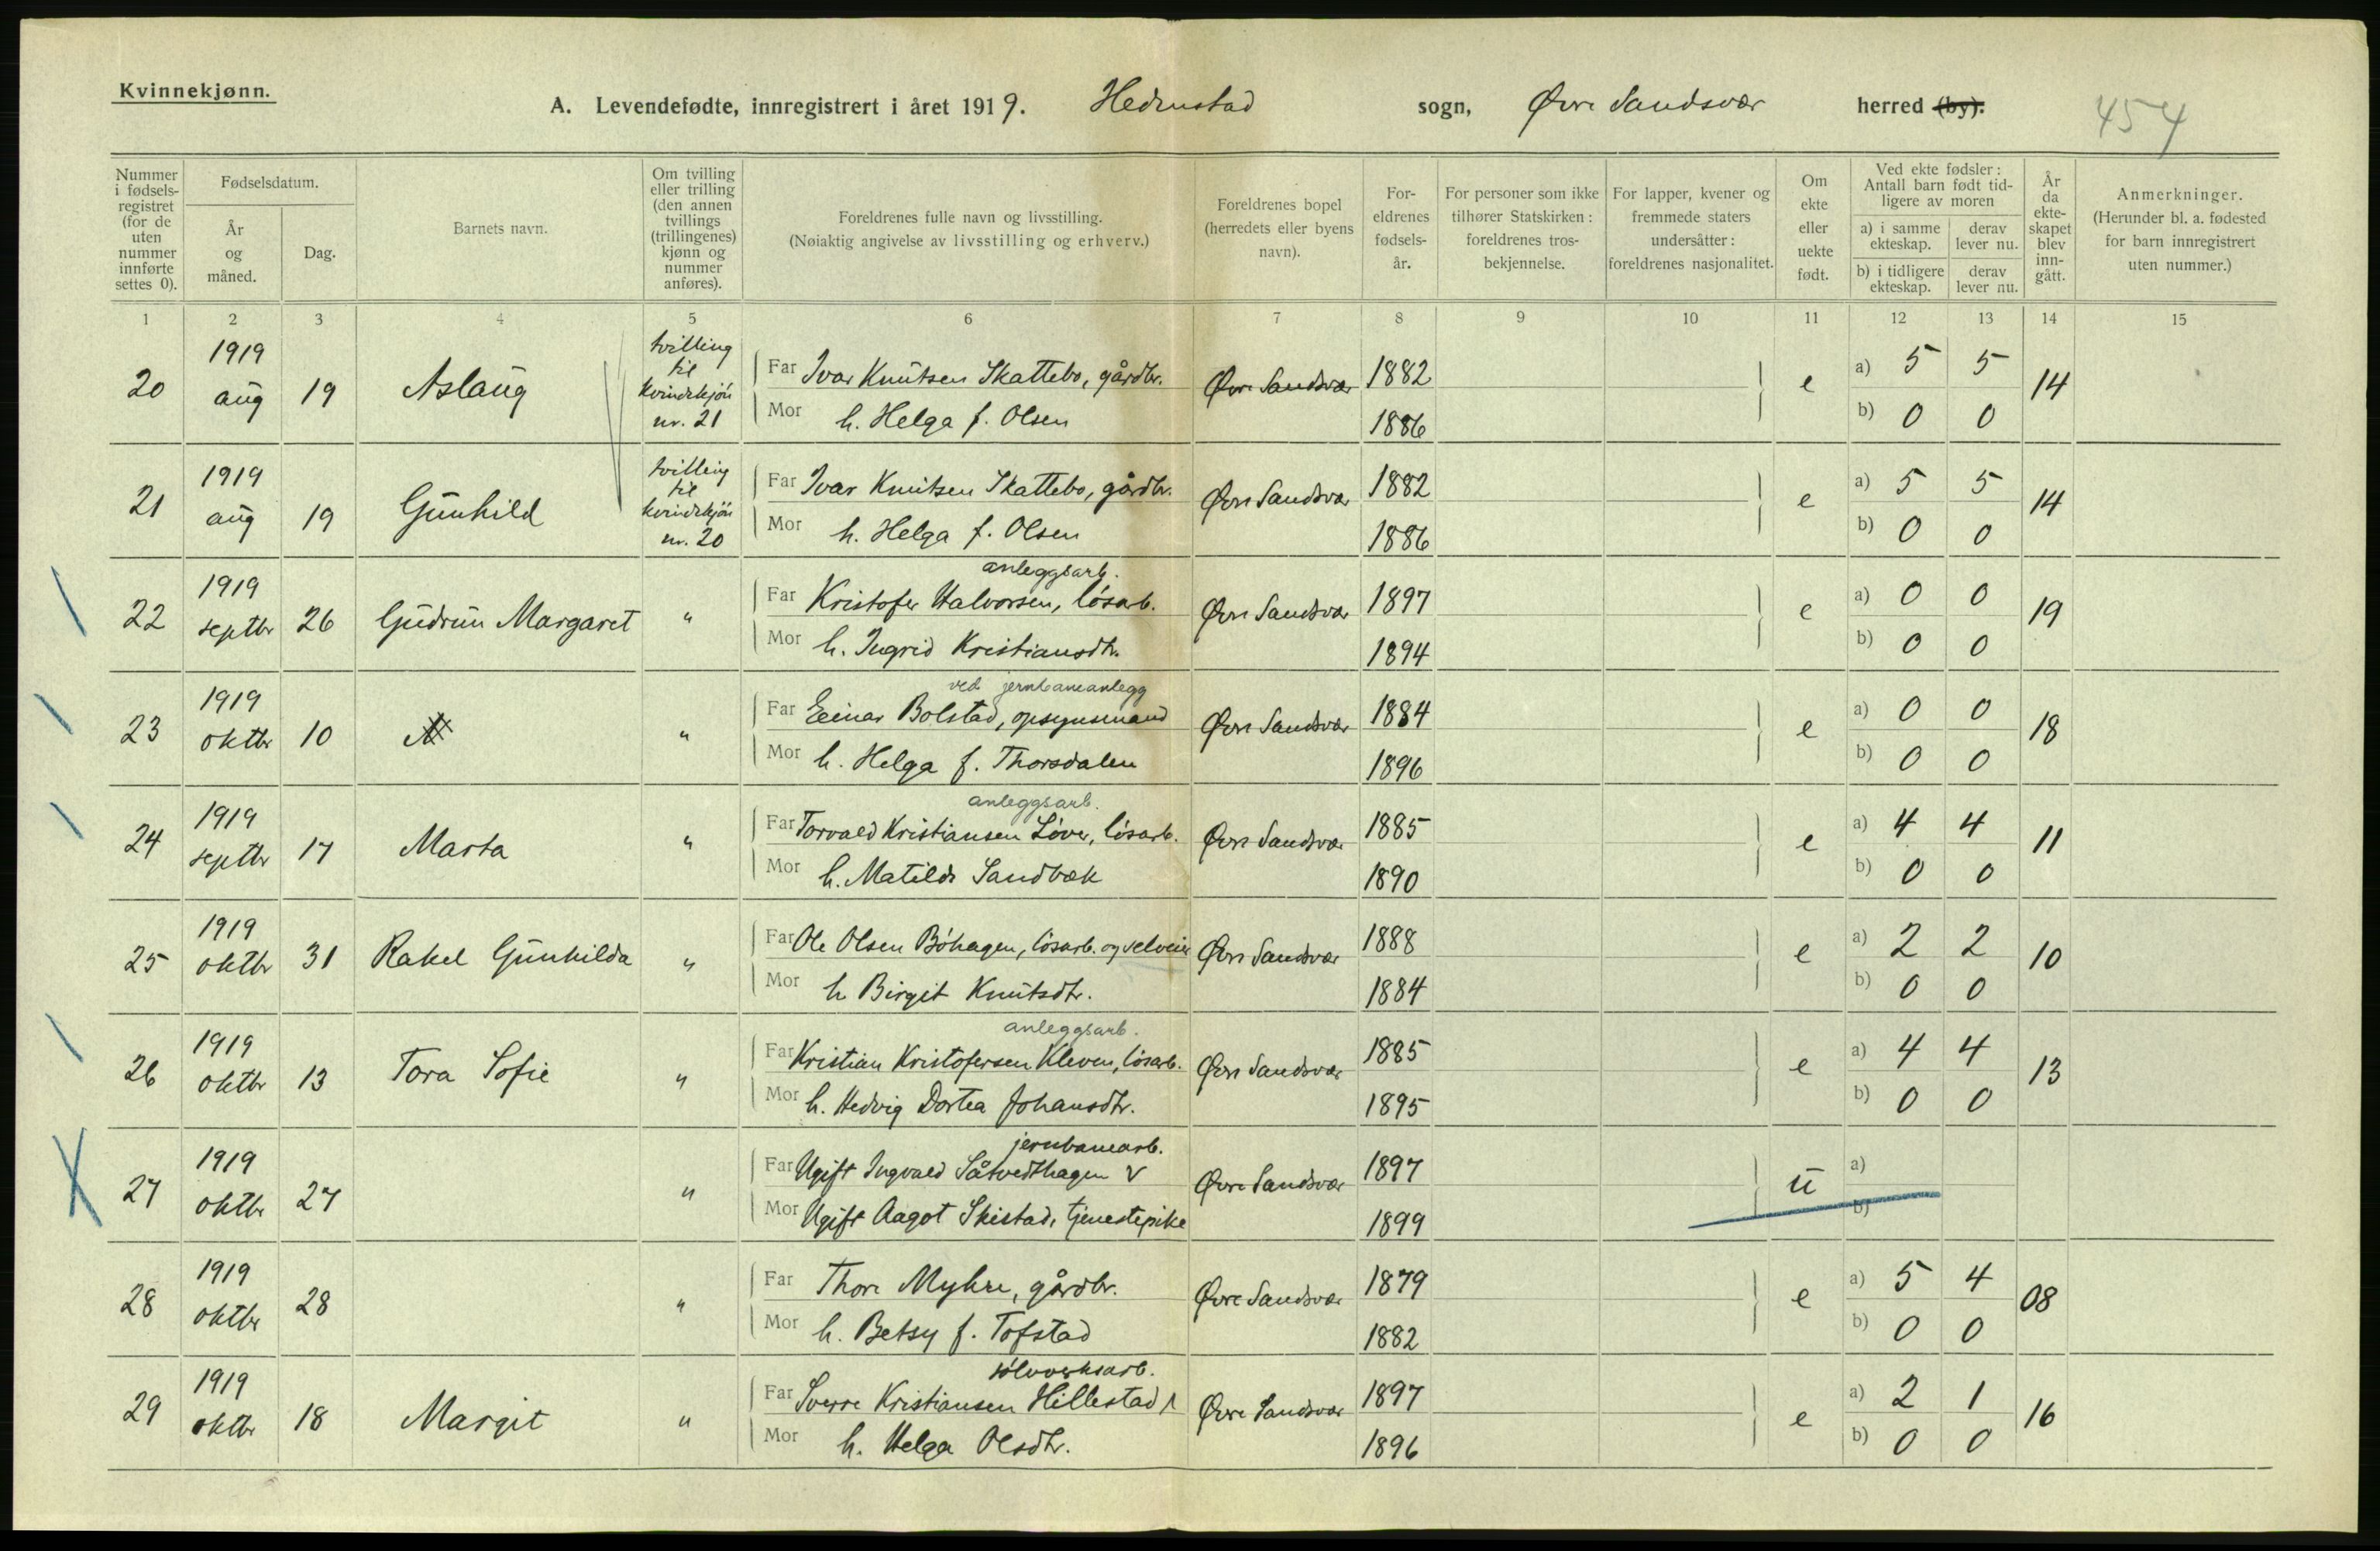 Kvinnekjønn.
A. Levendefødte, innregistrert i året 1919. Hedenstad sogn, Øvre Sandsvær herred (by).
454
Nummer i fødsels- registret (for de uten nummer innførte settes 0).
Fødselsdatum.
År og måned.
Dag.
Barnets navn.
Om tvilling eller trilling (den annen tvillings (trillingenes) kjønn og nummer anføres).
Foreldrenes fulle navn og livsstilling.
(Nøiaktig angivelse av livsstilling og erhverv.)
Foreldrenes bopel (herredets eller byens navn).
For- eldrenes fødsels- år.
For personer som ikke tilhører Statskirken: foreldrenes tros- bekjennelse.
For lapper, kvener og fremmede staters undersåtter: foreldrenes nasjonalitet.
Om ekte eller uekte født.
Ved ekte fødsler: Antall barn født tid- ligere av moren
a) i samme ekteskap.
derav lever nu.
b) i tidligere ekteskap.
derav lever nu.
År da ekte- skapet blev inn- gått.
Anmerkninger.
(Herunder bl. a. fødested for barn innregistrert uten nummer.)
1 2 3 4 5 6 7 8 9 10 11 12 13 14 15
20 1919 aug 19 Aslaug tvilling til kvindekjön nr. 21
Far Ivar Knutsen Skattebo, gårdbr. Øvre Sandsvær 1882 e a) 5 5 14
Mor h. Helga f. Olsen 1886 b) 0 0
21 1919 aug 19 Gunhild tvilling til kvindekjön nr. 20
Far Ivar Knutsen Skattebo, gårdbr. Øvre Sandsvær 1882 e a) 5 5 14
Mor h. Helga f. Olsen 1886 b) 0 0
anleggsarb.
22 1919 septbr 26 Gudrun Margaret "
Far Kristofer Halvorsen, løsarb. Øvre Sandsvær 1897 e a) 0 0 19
Mor h. Ingrid Kristiansdtr. 1894 b) 0 0
ved jernbaneanlegg
23 1919 oktbr 10 "
Far Eeinar Bolstad, opsynsmand Øvre Sandsvær 1884 e a) 0 0 18
Mor h. Helga f. Thorsdalen 1896 b) 0 0
anleggsarb.
24 1919 septbr 17 Marta "
Far Torvald Kristiansen Löver, løsarb. Øvre Sandsvær 1885 e a) 4 4 11
Mor h. Matilde Sandbæk 1890 b) 0 0
25 1919 oktbr 31 Rakel Gunhilda "
Far Ole Olsen Bóhagen, løsarb. og selveier Øvre Sandsvær 1888 e a) 2 2 10
Mor h Birgit Knutsdtr. 1884 b) 0 0
anleggsarb.
26 1919 oktbr 13 Tora Sofie "
Far Kristian Kristofersen Kleven, løsarb. Øvre Sandsvær 1885 e a) 4 4 13
Mor h. Hedvig Dortea Johansdtr. 1895 b) 0 0
jernbanearb.
27 1919 oktbr 27 "
Far Ugift Ingvald Såtvedthagen v Øvre Sandsvær 1897 u a)
Mor Ugift Aagot Skistad, tjenestepike 1899 b)
28 1919 oktbr 28 "
Far Thore Myhre, gårdbr. Øvre Sandsvær 1879 e a) 5 4 08
Mor h. Betsy f. Tofstad 1882 b) 0 0
sølvverksarb.
29 1919 oktbr 18 Margit "
Far Sverre Kristiansen Hillestad Øvre Sandsvær 1897 e a) 2 1 16
Mor h. Helga Olsdtr. 1896 b) 0 0